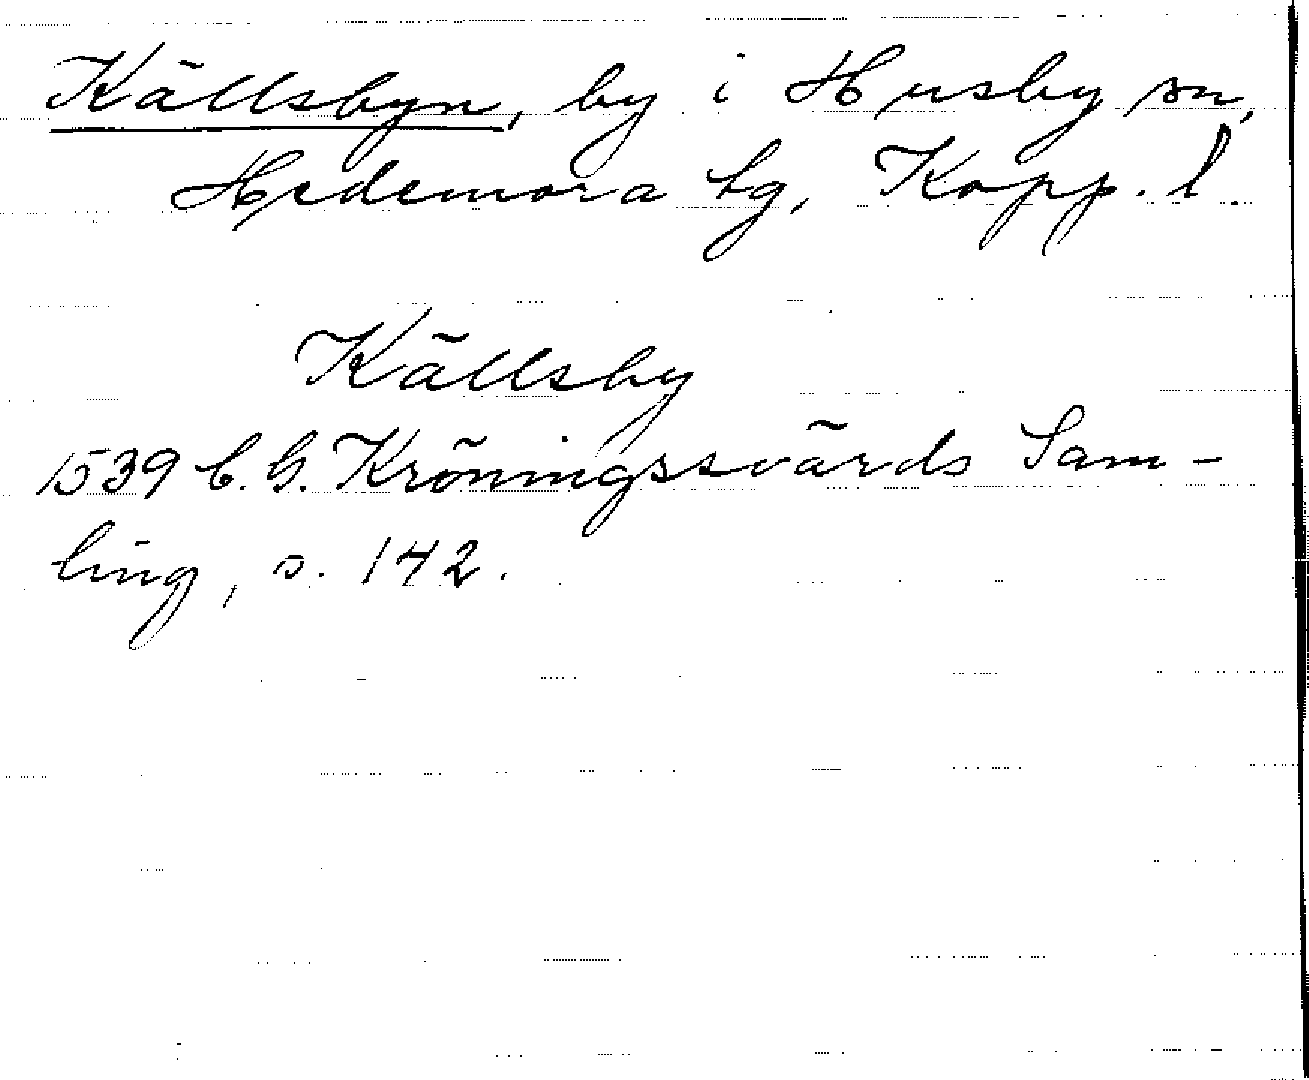 Källsbyn, by i Husby sn,
Hedemora tg, Kopp. l.
Källsby
1539 C. G. Kröningssvärds Sam-
ling, s. 142.